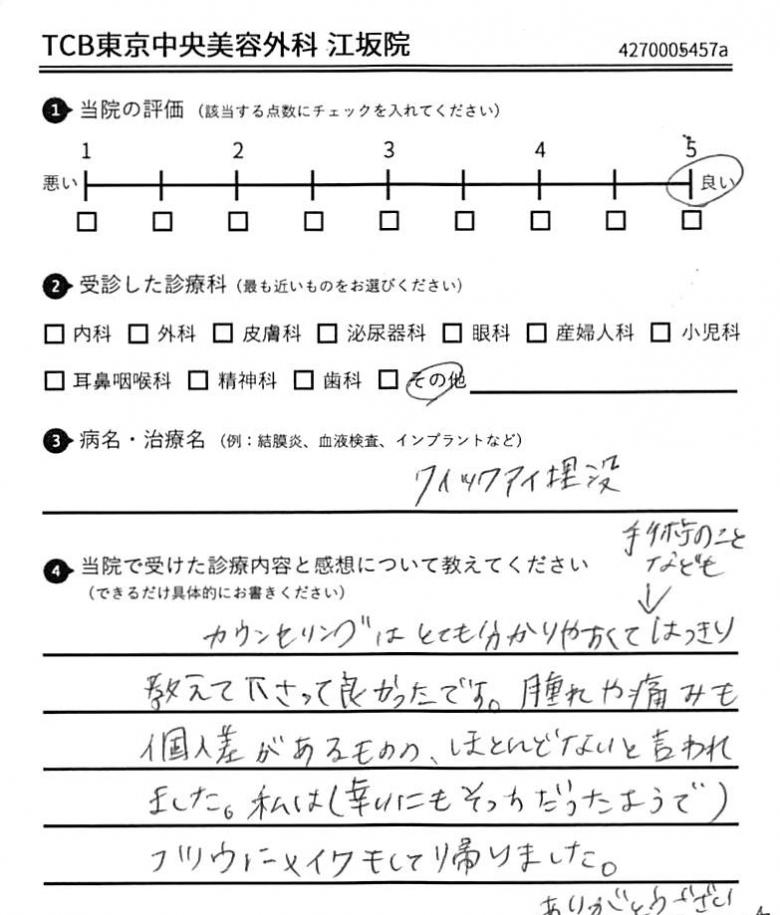 TCB東京中央美容外科 江坂院
4270005457a
1 当院の評価 (該当する点数にチェックを入れてください)
1 2 3 4 5
悪い 良い
2 受診した診療科 (最も近いものをお選びください)
内科 外科 皮膚科 泌尿器科 眼科 産婦人科 小児科
耳鼻咽喉科 精神科 歯科 その他
3 病名・治療名 (例：結膜炎、血液検査、インプラントなど)
クイックアイ埋没
4 当院で受けた診療内容と感想について教えてください
(できるだけ具体的にお書きください)
手術のこと
なども
↓
カウンセリングはとても分かりやすくてはっきり
教えて下さって良かったです。腫れや痛みも
個人差があるものの、ほとんどないと言われ
ました。私は(幸いにもそっちだったようで)
フツウにメイクもして帰りました。
ありがとうござい